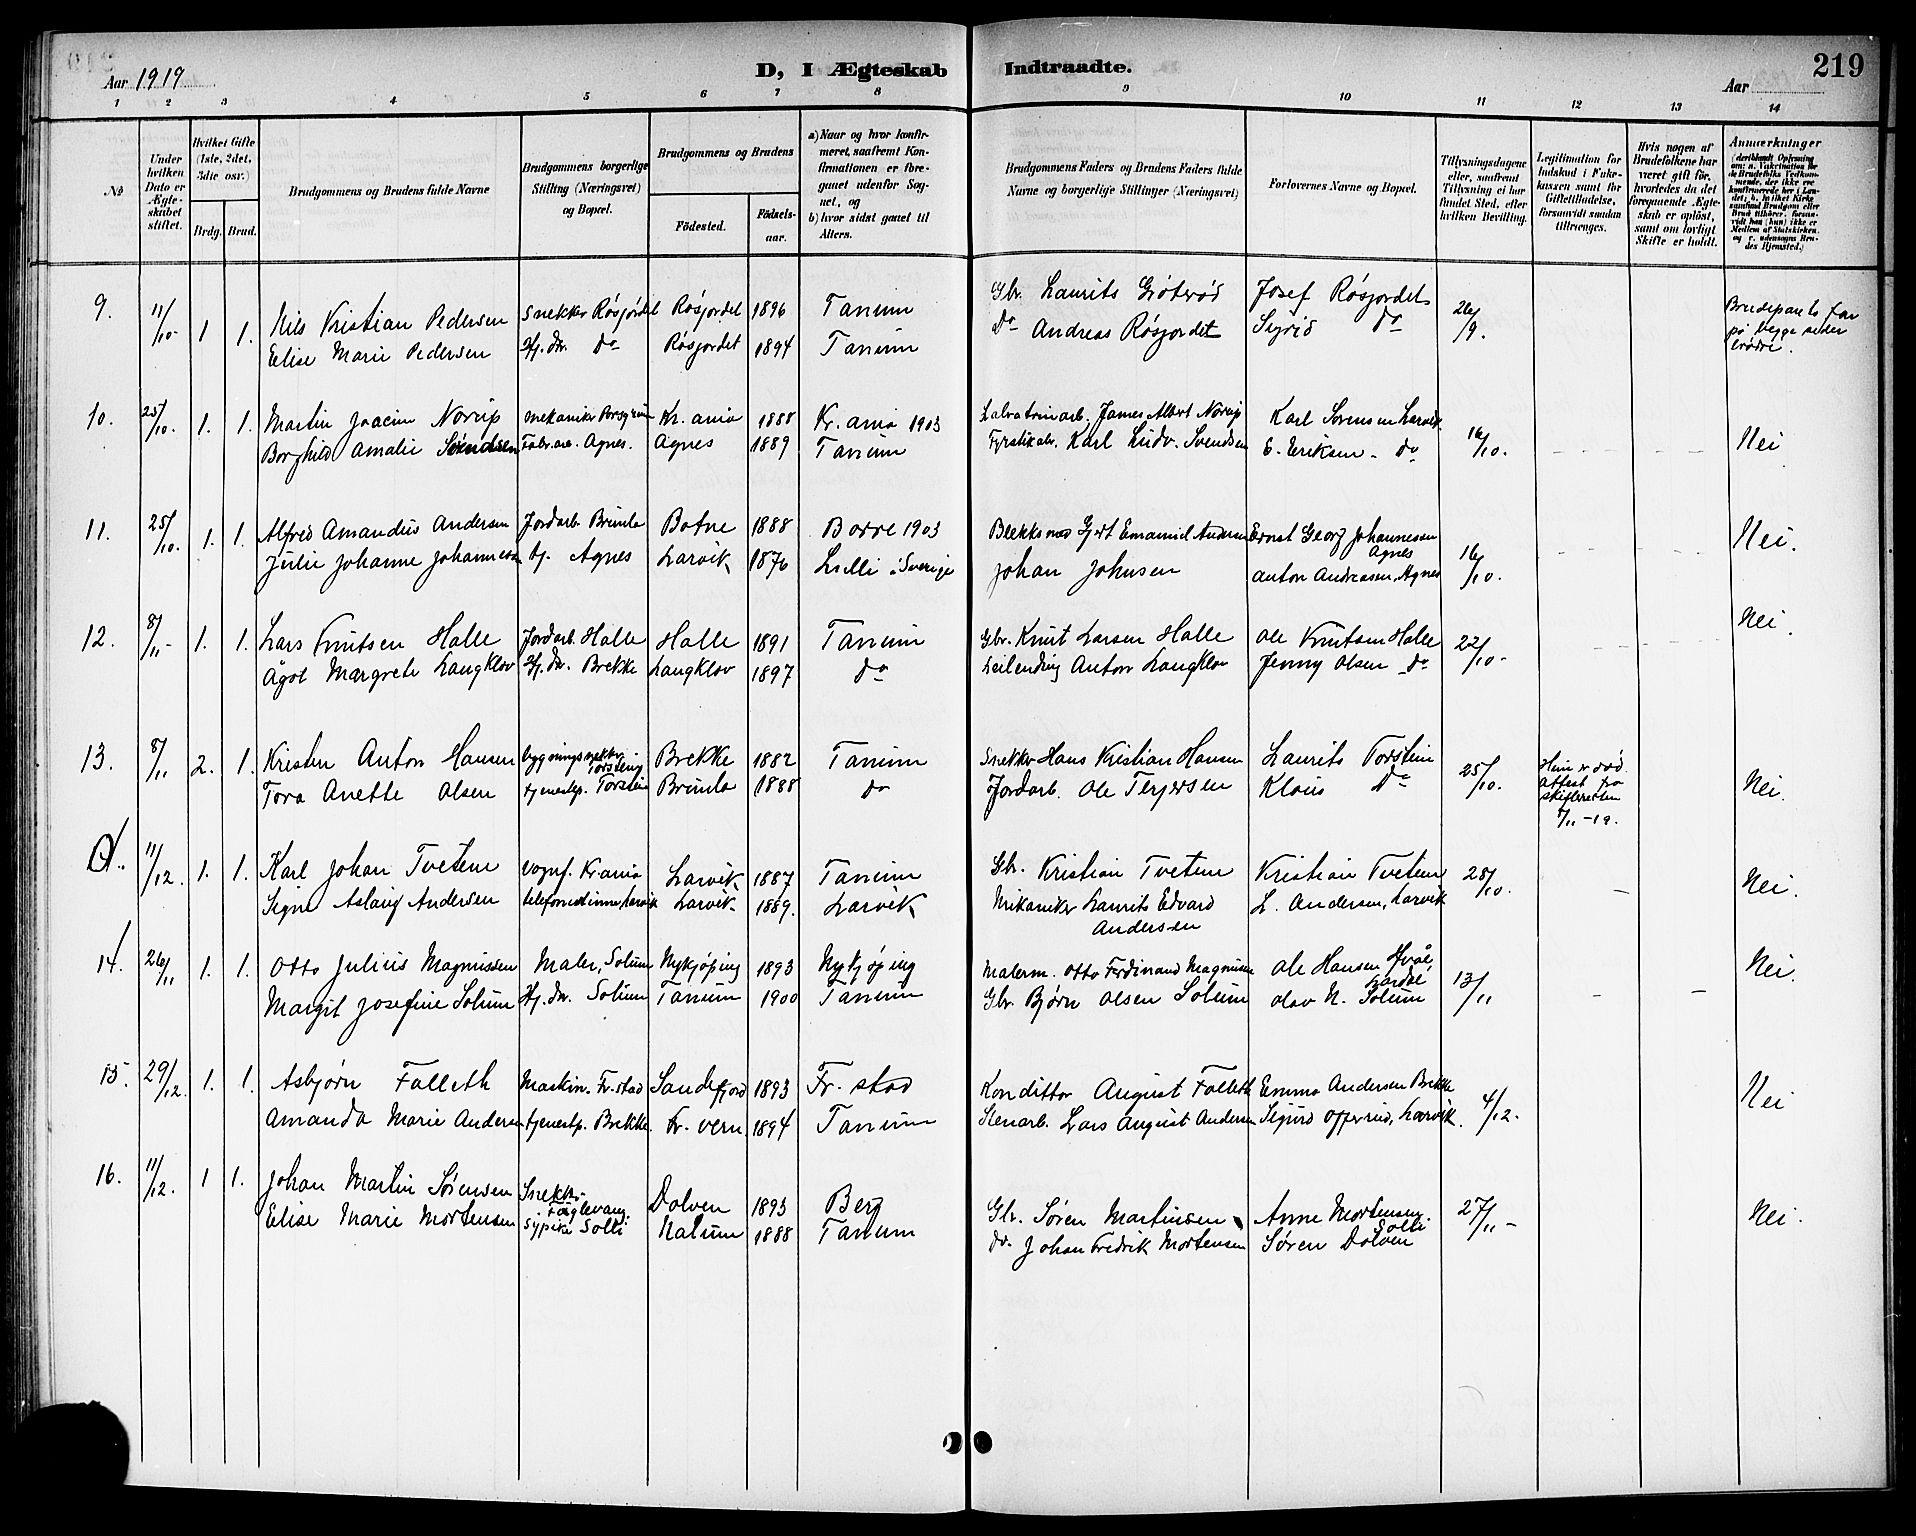 219
Aar 1919
D, I Ægteskab Indtraadte.
Aar
1 2 3 4 5 6 7 8 9 10 11 12 13 14
No
Under hvilken Dato er Ægteskabet stiftet.
Hvilket Gifte (1ste, 2det, 3die osv.)
Brdg. Brud.
Brudgommens og Brudens fulde Navne
Brudgommens borgerlige Stilling (Næringsvei) og Bopæl.
Brudgommens og Brudens
Fødested.
Fødselsaar.
a) Naar og hvor konfirmeret, saafremt Konfirmationen er foregaaet udenfor Sognet, og
b) hvor sidst gaaet til Alters.
Brudgommens Faders og Brudens Faders fulde Navne og borgerlige Stillinger (Næringsvei)
Forlovernes Navne og Bopæl.
Tillysningsdagene eller, saafremt Tillysning ei har fundet Sted, efter hvilken Bevilling.
Legitimation for Indskud i Enkekassen samt for Giftetilladelse, forsaavidt saadan tiltrænges.
Hvis nogen af Brudefolkene har været gift før, hvorledes da det foregaaende Ægteskab er opløst, samt om lovligt Skifte er holdt.
Anmærkninger
9. 11/10 1 1. Nils Kristian Pedersen Snekker Røsjordet Røsjordet 1896 Tanum Gbr. Laurits Grøterød Josef Røsjordet 26/9.
Elise Marie Pedersen Hj. dr. Do Røsjordet 1894 Tanum Do Andreas Røsjordet Sigrid Do
Brudeparets far på begge sider brødre.
10. 25/10. 1. 1. Martin Joacim Norup mekaniker Porsgrunn Kr.ania 1888 Kr.ania 1903 James Albert Norup Karl Sørensen Larvik 16/10. Nei
Borghild Amalie Svendsen Fabr.arb. Agnes. Agnes 1889 Tanum Fyrstikarb. Karl Ludv. Svendsen E. Eriksen - do
11. 25/10. 1. 1. Alfred Amandus Andersen Jordarb. Brunla Botne 1888 Borre 1903 Gjert Emanuel Andersen Ernst Georg Johannessen Agnes 16/10. Nei.
Julie Johanne Johannessen Agnes Larvik 1876 i Sverige Johan Johnsen Anton Andreasen, Agnes
12. 8/11- 1. 1. Lars Knutsen Halle Jordarb. Halle Halle 1891 Tanum Gbr. Knut Larsen Halle Ole Knutsen Halle 22/10- Nei.
Ågot Margrete Langklov Hj. dr. Brekke Langklov 1897 do Leilending Anton Langklov Jenny Olsen do
13. 8/11 2. 1. Kristen Anton Hansen bygningssnekker Torstein Brekke 1882 Tanum Snekker Hans Kristian Hansen Laurits Torstein 25/10. Nei.
Tora Anette Olsen tjenestep. Torstein Brunla 1888 do Jordarb. Ole Terjersen Klaus Do
Hun er død. Attest fra skifteretten 7/11-19.
11/12. 1. 1. Karl Johan Tveten vognf. Kr.ania Larvik 1887 Tanum Gbr. Kristian Tveten Kristian Tveten 28/10. Nei.
Signe Aslaug Andersen telefonistinne, Larvik Larvik 1889. Larvik Mekaniker Laurits Edvard Andersen L. Andersen, Larvik
14. 26/11 1. 1. Otto Julius Magnussen Maler, Solum Nykjøping 1893 Nykjøping Malerm. Otto Ferdinand Magnusen Ole Hansen Hvål, Lardal 13/11 Nei.
Margit Josefine Solum Hj. dr. Solum Tanum 1900 Tanum Gbr. Bjørn Olsen Solum Olav N. Solum
15. 29/12. 1. 1. Asbjørn Falleth Maskin. Fr.stad Sandefjord 1893 Fr. stad Kondittor August Falleth Emma Andersen Brekke 4/12. Nei
Amanda Marie Andersen tjenestp. Brekke. Fr. vern 1894 Tanum Stenarb. Lars August Andersen Sigurd Opperud, Larvik.
16. 11/12. 1 1. Johan Martin Sørensen Snekker Dolven 1893 Berg Gbr. Søren Martinsen Anne Mortensen Solli 27/11- Nei.
Elise Marie Mortensen Sypike Solli Nalum 1888 Tanum do. Johan Fredrik Mortensen Søren Dolven